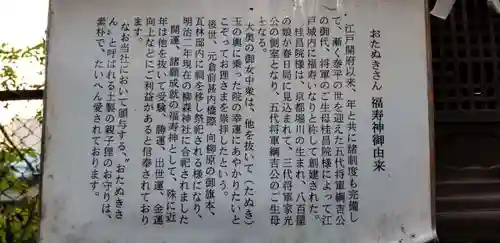 おたぬきさん 福寿神御由来
江戸開府以来、年と共に諸制度も完備し
て、漸く泰平の世を迎えた五代将軍綱吉公
の御代、将軍のご生母桂昌院様によって江
戸城内に福寿いなりと称して創建された。
桂昌院様は、京都堀川の生まれ、八百屋
の娘が春日局に見込まれて、三代将軍家光
公の側室となり、五代将軍綱吉公のご生母
大奥の御女中衆は、他を抜いて(たぬき)
玉の輿に乗った院の幸運にあやかりたいと
こぞってお狸さまを崇拝したという。
後世、元倉前甚内橋際 向柳原の御旗本、
瓦林邸内に祠を移し祭祀される様になり、
明治二年現在の柳森神社に合祀されました
開運、諸願成就の福寿神として、殊に近
年は他を抜いて受験、勝運、出世運、金運
向上などにご利益があると信奉されており
ます。
なお当社において頒与する、〝おたぬきさ
ん〟と呼ばれる土製の親子狸のお守りは、
素朴で、たいへん愛されております。